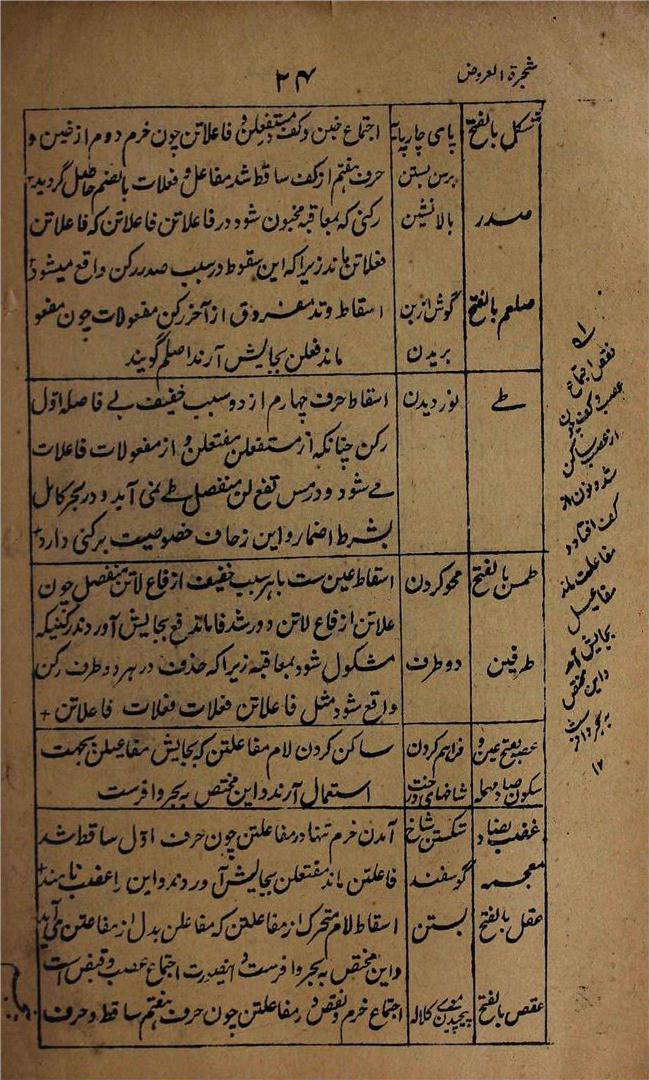 شجرة العروض
۲۴
شکل بالفتح پای چارپا اجتماع خبن و کف مستفعلن و فاعلاتن چون خرم دوم از خبن و
برسن بستن حرف هفتم از کف ساقط شد مفاعل و فعلات بالضم حاصل گردید
صدر بالانشین رکنی که بمعاقبه مخبون شود در فاعلاتن فاعلاتن که فاعلاتن
فعلاتن ماند زیرا که این سقوط در سبب صدر رکن واقع میشود
صلم بالفتح گوش از بن اسقاط وتد مفروق از آخر رکن مفعولات چون مفعو
بریدن ماند فعلن بجایش آرند اصلم گویند
طے نوردیدن اسقاط حرف چهارم از دو سبب خفیف بے فاصله اول
رکن چنانکه از مستفعلن مفتعلن و از مفعولات فاعلات
مے شود و در مس تفع لن منفصل طے نمی آید و در بحر کامل
بشرط اضمار و این زحاف خصوصیت برکنی دارد
طمس بالفتح محو کردن اسقاط عین ست با هر سبب خفیف از فاع لاتن منفصل چون
علاتن از فاع لاتن دور شد فا ماند فع بجایش آوردند رکنیکه
طرفین دو طرف مشکول شود بمعاقبه زیرا که حذف در هر دو طرف رکن
واقع شود مثل فاعلاتن فعلات فعلات فاعلاتن +
عصب بفتح عین و فراهم کردن ساکن کردن لام مفاعلتن که بجایش مفاعیلن بجهت
سکون صاد مهمله شاخهای درخت استعمال آرند و این مختص به بحر وافر ست
غضب بضاد شکستن شاخ آمدن خرم تنها در مفاعلتن چون حرف اول ساقط شد
معجمه گوسفند فاعلتن ماند مفتعلن بجایش آوردند و این را عضب نامند
عقل بالفتح بستن اسقاط لام متحرک از مفاعلتن که مفاعلن بدل از مفاعتن می آید
واین مختص به بحر وافرست و اینصورت اجتماع عصب و قبض است
عقص بالفتح پیچیدن کلاله اجتماع خرم و نقص در مفاعلتن چون حرف هفتم ساقط و حرف
نقص اجتماع
عصب و کف چون
از عصب ساکن
شد و نون از
کف افتاد و
مفاعلت ماند
مفاعیل
بجایش آمد
و این مختص
به بحر وافرست
۱۲